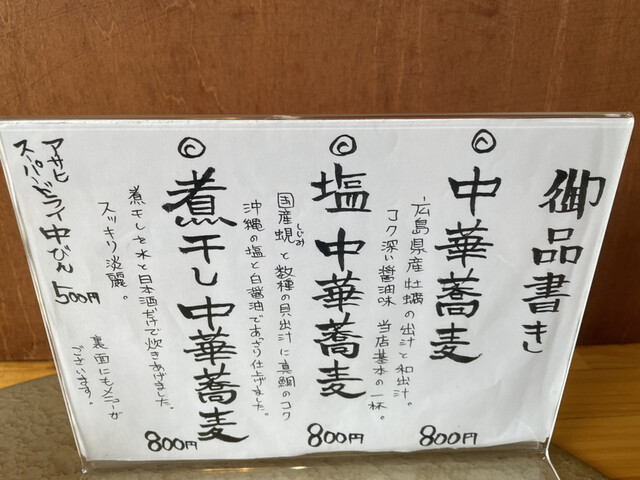 御品書き
◎中華蕎麦 800円
広島県産牡蠣の出汁と和出汁。
コク深い醤油味 当店基本の一杯。
◎塩中華蕎麦 800円
国産蜆しじみと数種の貝出汁に真鯛のコク
沖縄の塩と白醤油であっさり仕上げました。
◎煮干し中華蕎麦 800円
煮干しを水と日本酒だけで炊きあげました。
スッキリ淡麗。
アサヒ
スーパードライ中びん 500円
裏面にもメニューが
ございます。